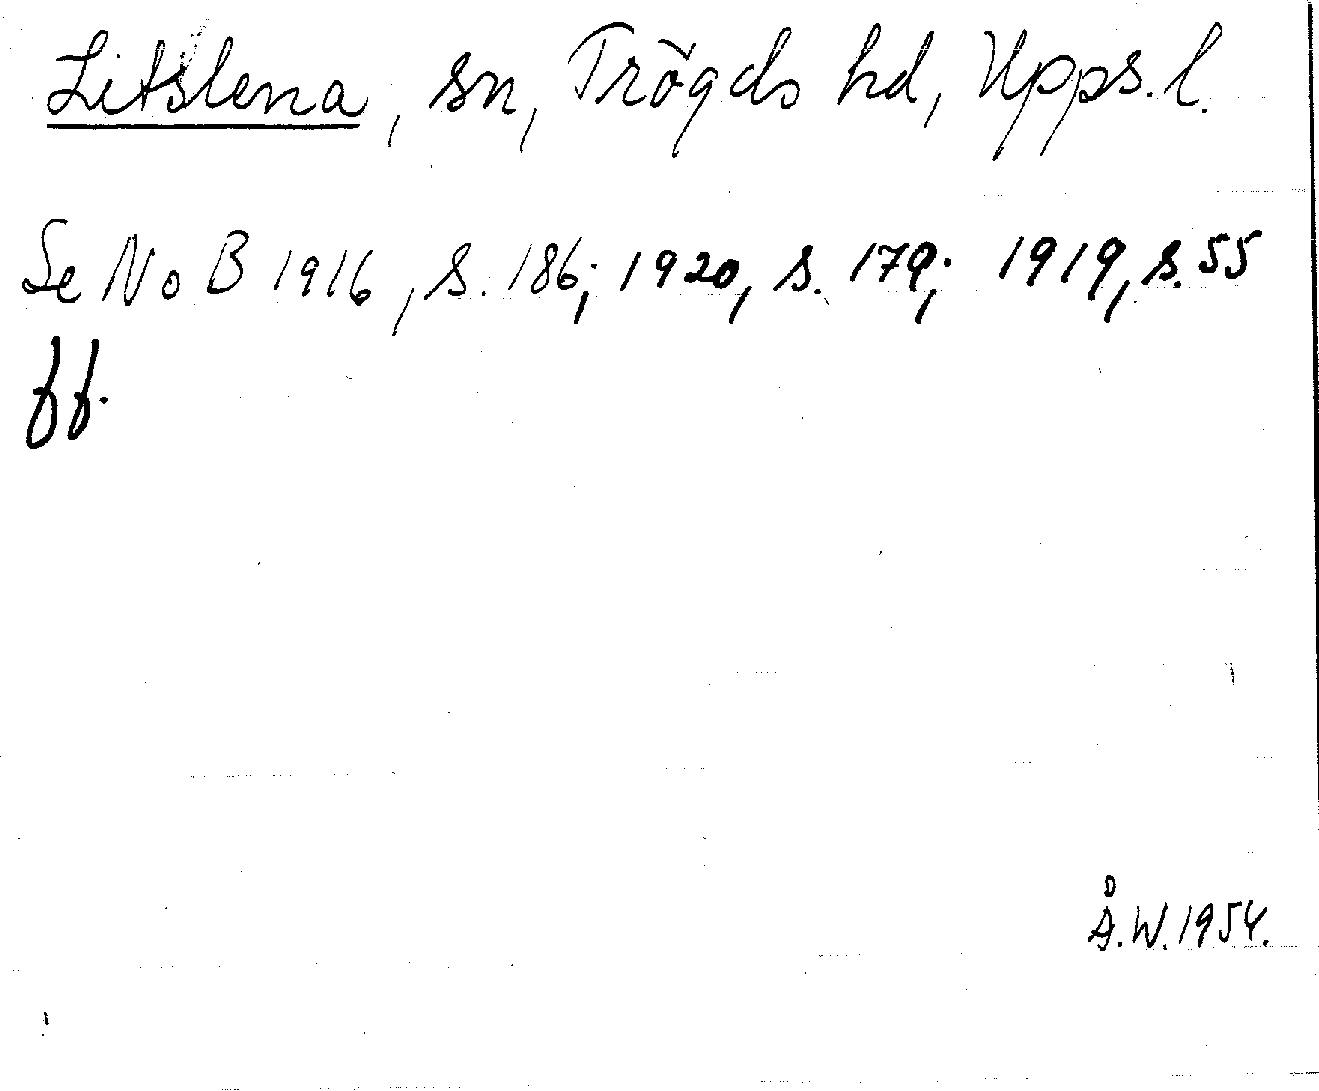 Litslena, sn, Trögds hd, Upps. l.
Se NoB 1916, s. 186; 1920, s. 179; 1919, s. 55
ff.
Å.W. 1954.